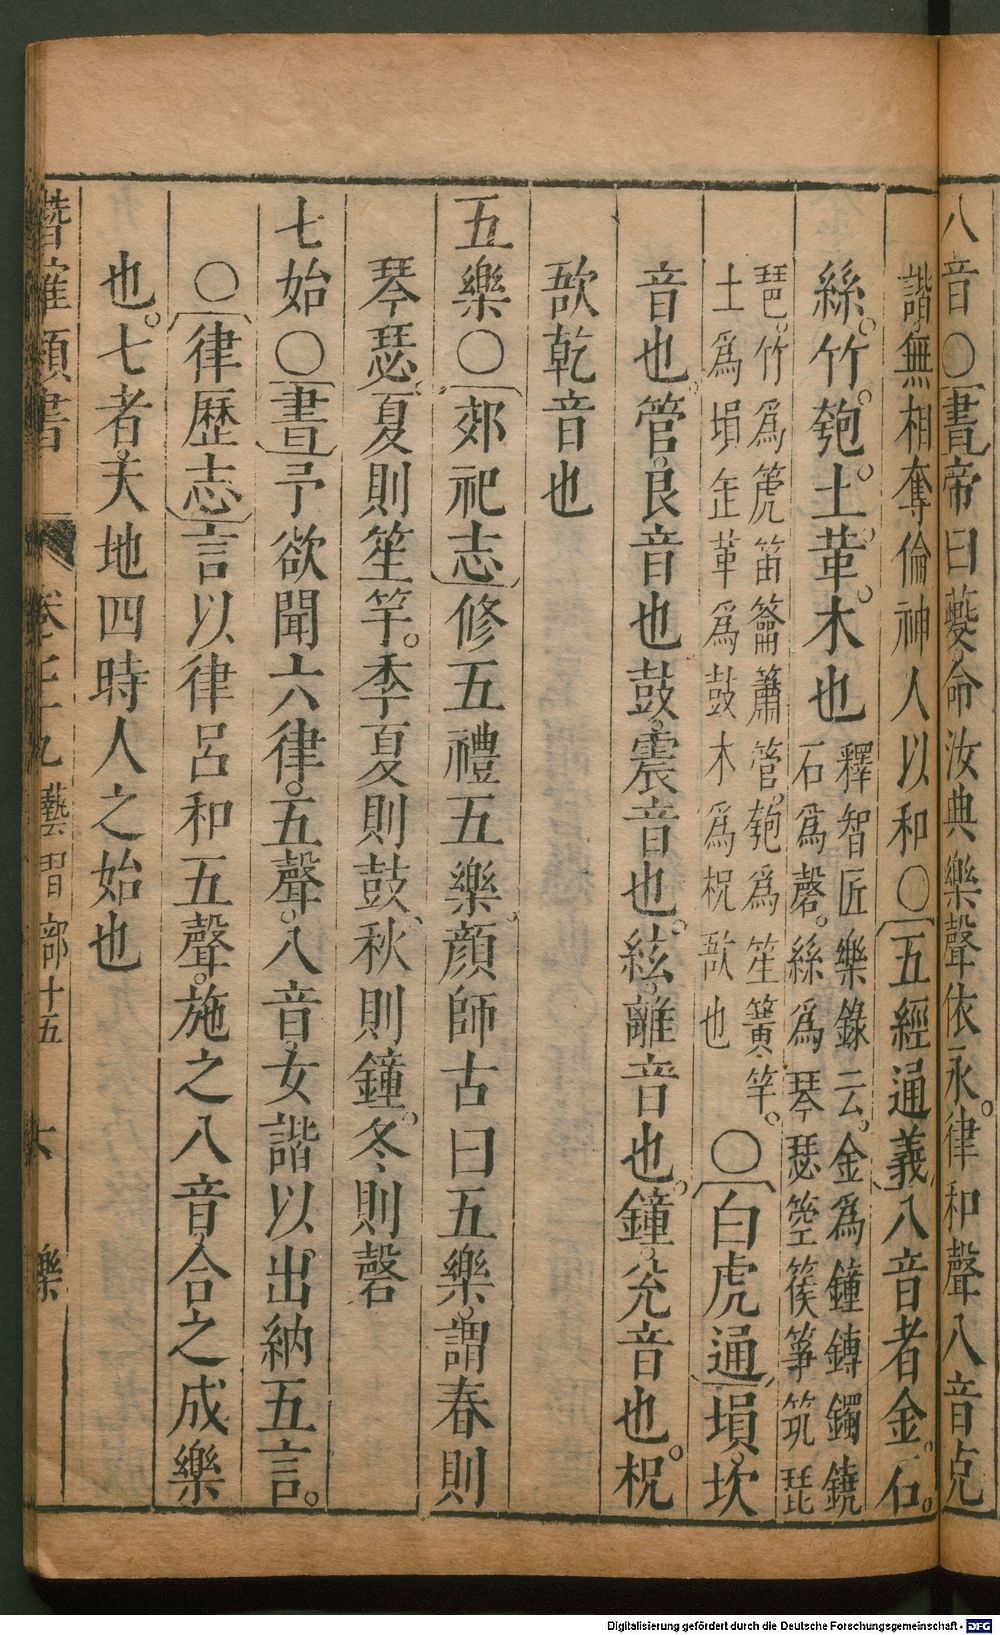 八音○書帝曰夔命汝典樂聲依永律和聲八音克
諧無相奪倫神人以和○五經通義八音者金石
絲竹匏土革木也釋智匠樂錄云金為鐘鎛鐲鐃
石為磬絲為琴瑟箜篌箏筑琵
琶竹為箎笛籥簫管匏為笙簧竽
土為塤缶革為鼓木為柷敔也○白虎通塤坎
音也管艮音也鼓震音也絃離音也鐘兌音也柷
敔乾音也
五樂○郊祀志修五禮五樂顔師古曰五樂謂春則
琴瑟夏則笙竽季夏則鼓秋則鐘冬則磬
七始○書予欲聞六律五聲八音女諧以出納五言
○律歷志言以律呂和五聲施之八音合之成樂
也七者天地四時人之始也
潛確類書 卷七十九藝習部十五 六 樂
Digitalisierung gefördert durch die Deutsche Forschungsgemeinschaft - DFG